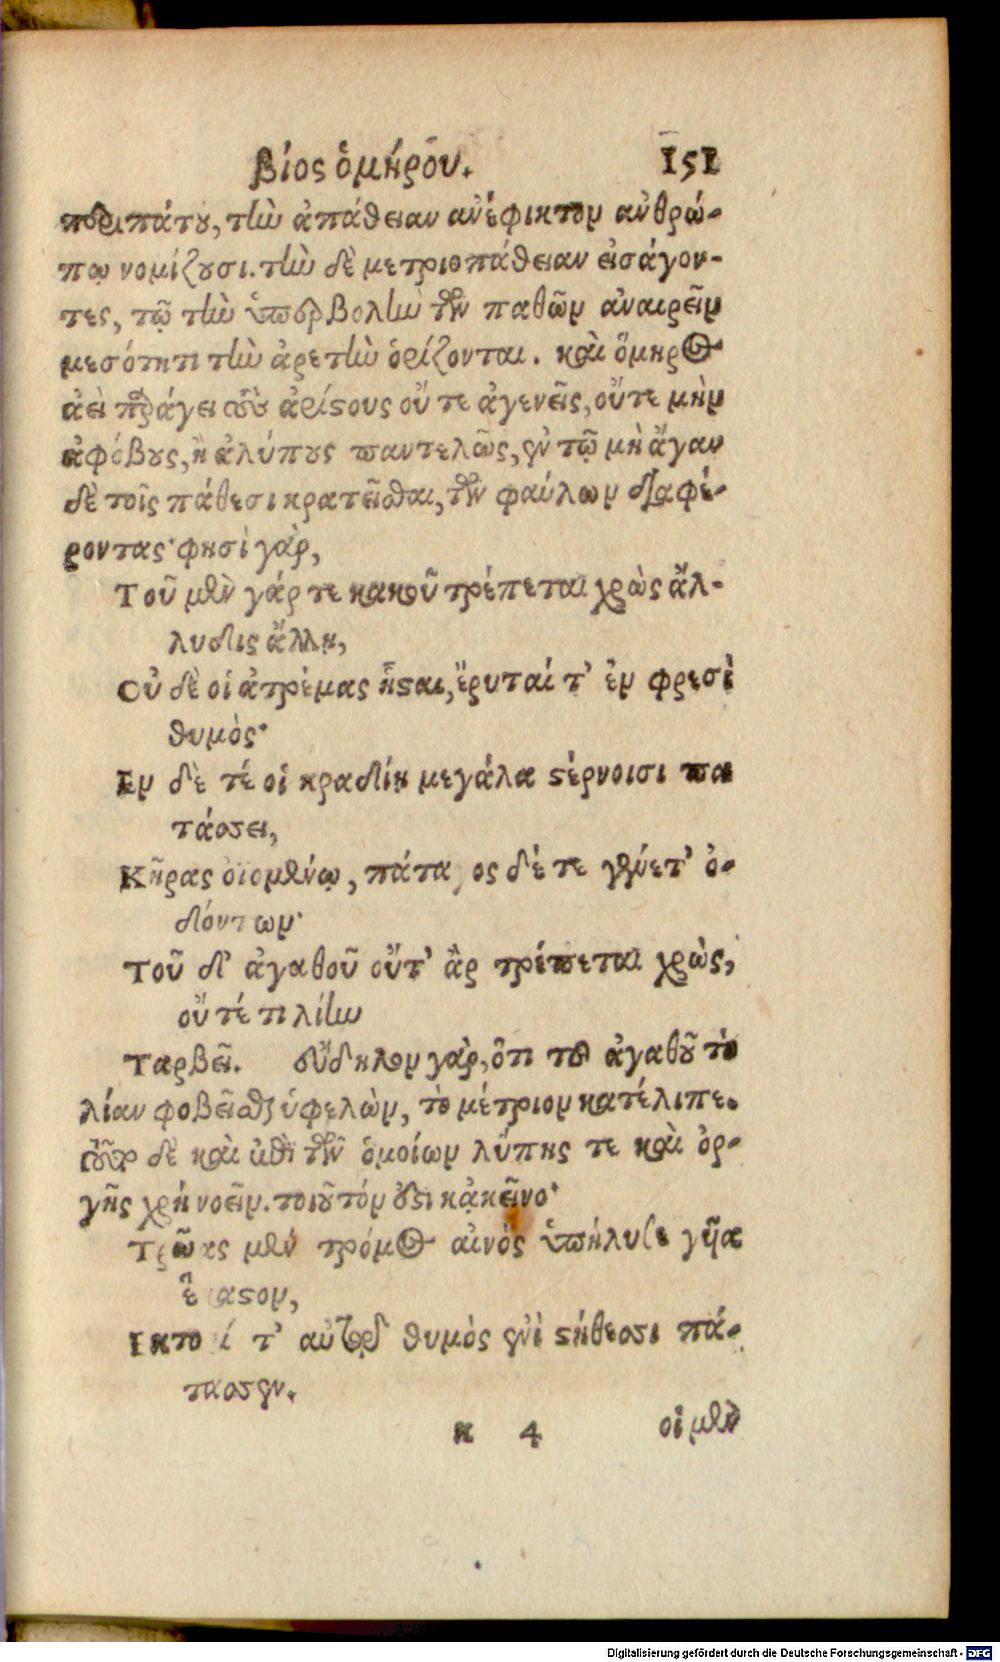 βίος ὁμήρου. 151
περιπάτου, τὴν ἀπάθειαν ἀνέφικτον ἀνθρώ-
πῳ νομίζουσι. τὴν δὲ μετριοπάθειαν εἰσάγον-
τες, τῷ τὴν ὑπερβολὴν τῶν παθῶν ἀναιρεῖν
μεσότητι τὴν ἀρετὴν ὁρίζονται. καὶ ὅμηρος
ἀεὶ προάγει τοὺς ἀρίστους οὔ τε ἀγενεῖς, οὔτε μὴν
ἀφόβους, ἢ ἀλύπους παντελῶς, ἐν τῷ μὴ ἄγαν
δὲ τοῖς πάθεσι κρατεῖσθαι, τῶν φαύλων διαφέ-
ροντας· φησὶ γὰρ,
Τοῦ μὲν γάρ τε κακοῦ τρέπεται χρὼς ἄλ-
λυδις ἄλλῃ,
Οὐ δὲ οἱ ἀτρέμας ἧσται, ἔρυταί τ' ἐν φρεσὶ
θυμὸς·
Ἐν δὲ τέ οἱ κραδίη μεγάλα στέρνοισι πα
τάσσει,
Κῆρας ὀϊομένῳ, πάταγος δέ τε γίγνετ' ὀ-
δόντων·
Τοῦ δ' ἀγαθοῦ οὔτ' ἂρ τρέπεται χρὼς,
οὔ τέ τι λίην
Ταρβεῖ. εὔδηλον γὰρ, ὅτι τοῦ ἀγαθοῦ τὸ
λίαν φοβεῖσθαι ὑφελὼν, τὸ μέτριον κατέλιπε.
τοῦτο δὲ καὶ ἐπὶ τῶν ὁμοίων λύπης τε καὶ ὀρ-
γῆς χρὴ νοεῖν. τοιοῦτόν ἐστι κᾀκεῖνο·
Τρῶας μὲν τρόμος αἰνὸς ὑπήλυθε γυῖα
ἕκαστον,
Ἕκτορί τ' αὐτῷ θυμὸς ἐνὶ στήθεσσι πά-
τασσεν.
κ 4 οἱ μὲν
Digitalisierung gefördert durch die Deutsche Forschungsgemeinschaft - DFG